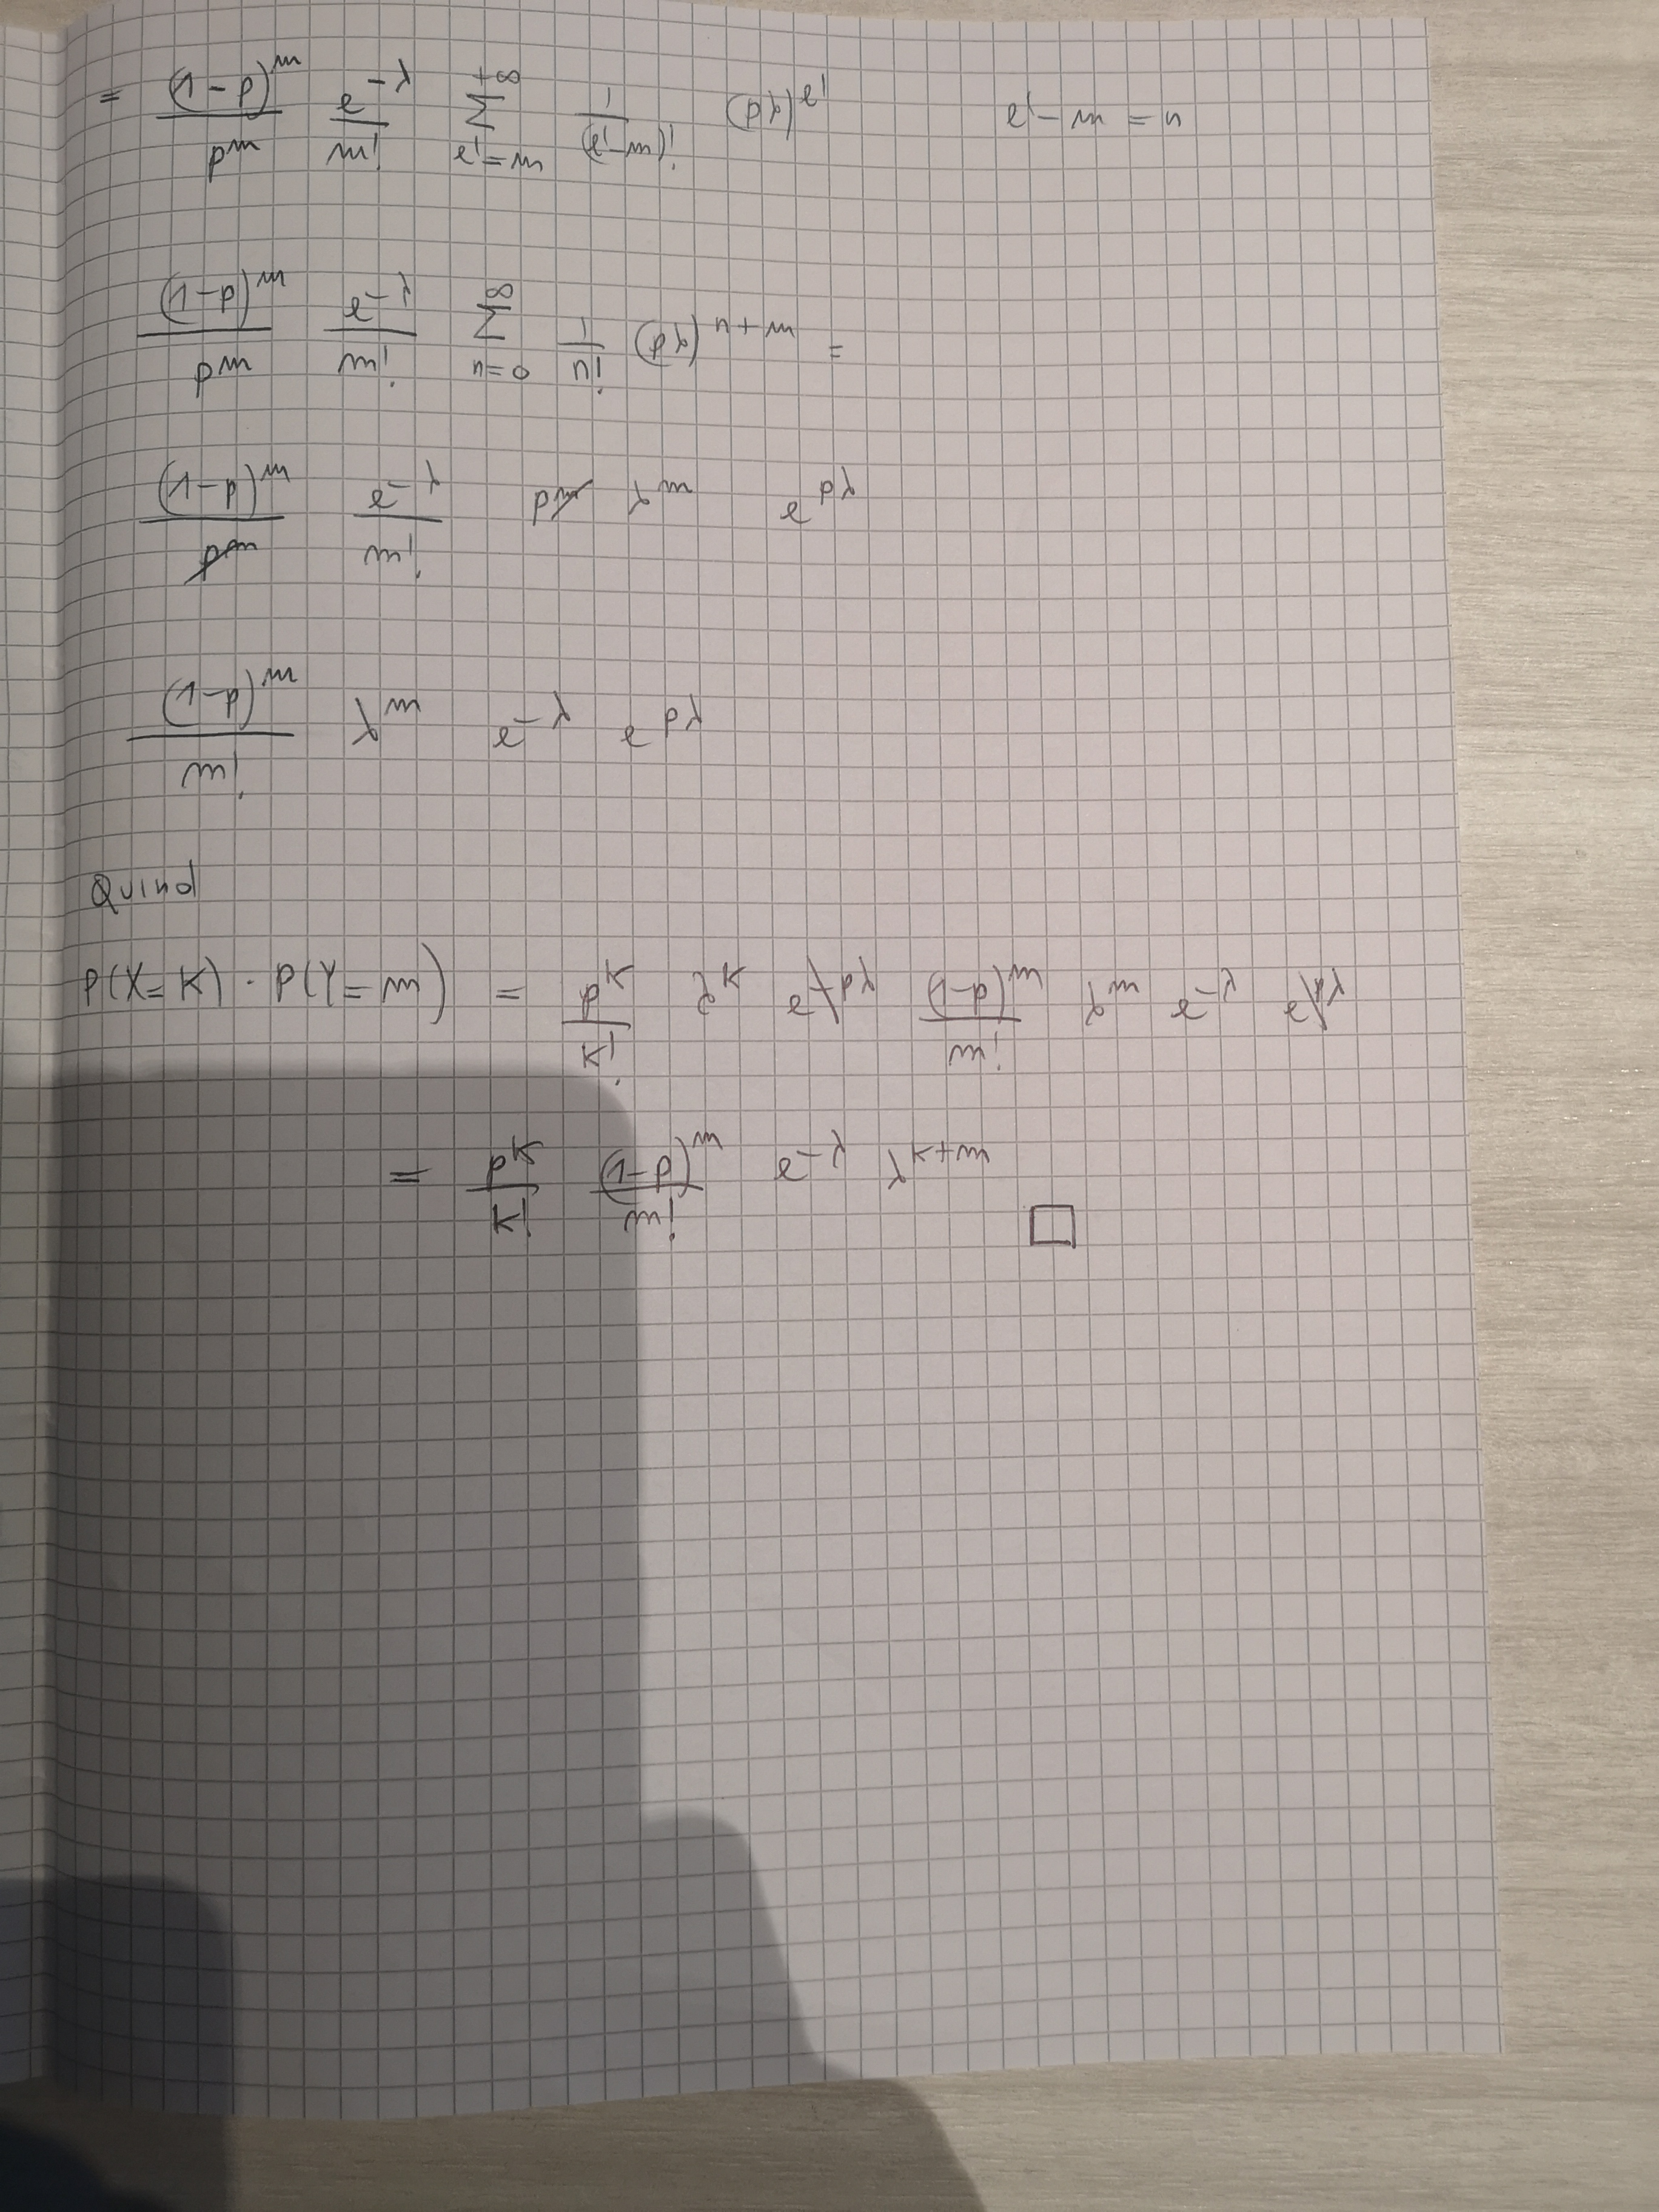 = (1-p)^m / p^m e^-λ / m! Σ_{l'=m}^{+∞} 1 / (l'-m)! (pλ)^l' l'-m = n
(1-p)^m / p^m e^-λ / m! Σ_{n=0}^{∞} 1 / n! (pλ)^{n+m} =
(1-p)^m / p^m e^-λ / m! p^m λ^m e^{pλ}
(1-p)^m / m! λ^m e^-λ e^{pλ}
Quind
P(X=K) · P(Y=m) = p^K / K! λ^K e^{-pλ} (1-p)^m / m! λ^m e^-λ e^{pλ}
= p^K / K! (1-p)^m / m! e^-λ λ^{K+m} □